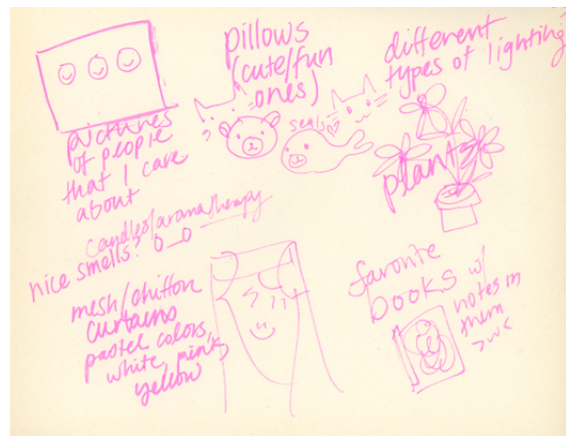 pictures
of people
that I care
about
pillows
(cute/fun
ones)
seals
different
types of lighting
plants
candles/aromatherapy
nice smells? o_o
mesh/chiffon
curtains
pastel colors,
white, pink,
yellow
favorite
books w/
notes in
them
>w<